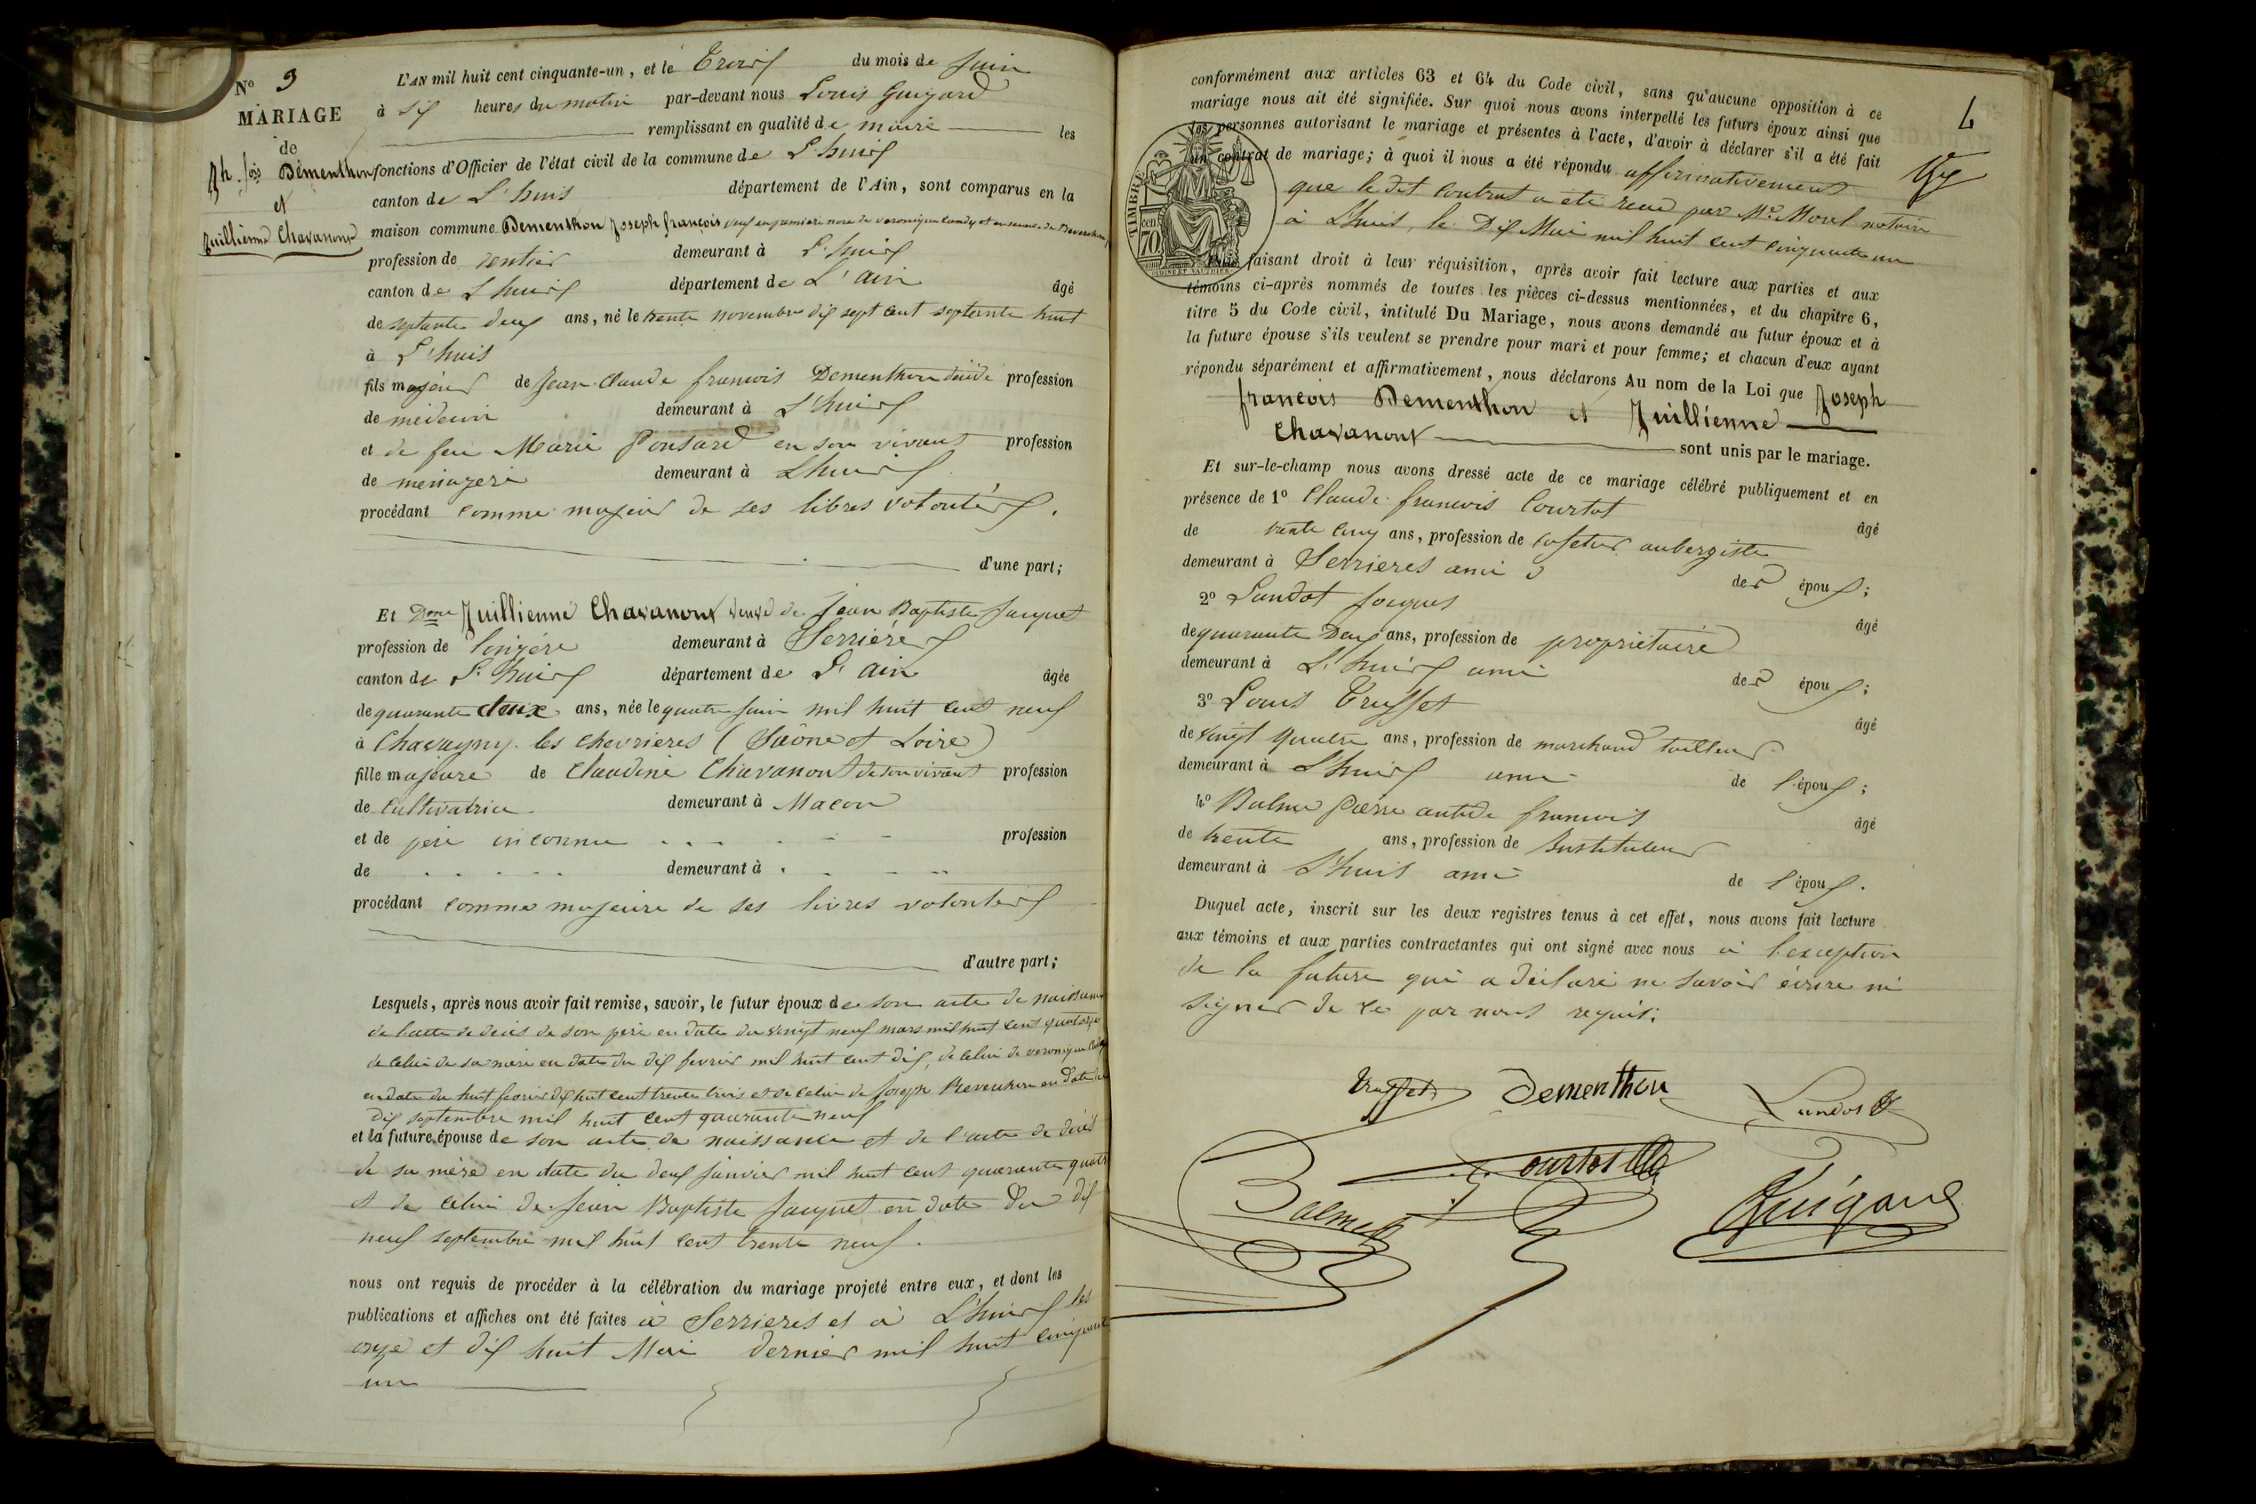 N° 9
MARIAGE
de
Jh. fois Dementhon
et
Juillienne Chavanont
L'AN mil huit cent cinquante-un, et le Trois du mois de Juin
à six heures du matin par-devant nous Louis Guigard
remplissant en qualité de maire les
fonctions d'Officier de l'état civil de la commune de L'huis
canton de L'huis département de l'Ain, sont comparus en la
maison commune Dementhon Joseph françois veuf en première noce de veronique et en second de
profession de rentier demeurant à L'huis
canton de L'huis département de L'ain âgé
de septante deux ans, né le trente novembre dix sept cent septente huit
à L'huis
fils majeur de Jean Claude francois Dementhon décédé profession
de médecin demeurant à L'huis
et de feu Marie Ponsard en son vivant profession
de menagere demeurant à Lhuis
procédant comme majeur de ses libres volontés.
d'une part;
Et Dme Juillienne Chavanont veuve de Jean Baptiste Jacquet
profession de lingère demeurant à Serrières
canton de L'huis département de L'ain âgée
de quarante deux ans, née le quatre Juin mil huit cent neuf
à Chavagny les chevrieres (Saône et Loire)
fille majeure de Claudine Chavanont de son vivant profession
de cultivatrice demeurant à Macon
et de père inconnu profession
de demeurant à
procédant comme majeure de ses livres volontes
d'autre part;
Lesquels, après nous avoir fait remise, savoir, le futur époux de son acte de naissance
de l'acte de deces de son pere en date du vingt neuf mars mil huit cent quatorze
de celui de sa mere en date du dix fevrier mil huit cent dix, de celui de veronique
en date du huit fevrier dix huit cent trente trois et de celui de Joseph en date du
dix septembre mil huit cent quarante neuf
et la future épouse de son acte de naissance et de l'acte de décès
de sa mère en date du deux Janvier mil huit cent quarante quatre
et de celui de Jean Baptiste Jacquet en date du dix
neuf septembre mil huit cent trente neuf.
nous ont requis de procéder à la célébration du mariage projeté entre eux, et dont les
publications et affiches ont été faites à Serrieres et à L'huis les
onze et dix huit Mai dernier mil huit cinquante
un
conformément aux articles 63 et 64 du Code civil, sans qu'aucune opposition à ce
mariage nous ait été signifiée. Sur quoi nous avons interpellé les futurs époux ainsi que
les personnes autorisant le mariage et présentes à l'acte, d'avoir à déclarer s'il a été fait
un contrat de mariage; à quoi il nous a été répondu affirmativement
que le dit contrat a ete recu par Me Morel notaire
à L'huis, le Dix Mai mil huit cent cinquante un
TIMBRE
cen
70
faisant droit à leur réquisition, après avoir fait lecture aux parties et aux
témoins ci-après nommés de toutes les pièces ci-dessus mentionnées, et du chapitre 6,
titre 5 du Code civil, intitulé Du Mariage, nous avons demandé au futur époux et à
la future épouse s'ils veulent se prendre pour mari et pour femme; et chacun d'eux ayant
répondu séparément et affirmativement, nous déclarons Au nom de la Loi que Joseph
francois Dementhon et Juillienne
Chavanont sont unis par le mariage.
Et sur-le-champ nous avons dressé acte de ce mariage célébré publiquement et en
présence de 1° Claude francois Courtot
âgé
de trente cinq ans, profession de cafetier aubergiste
demeurant à Serrieres ami des époux;
2° Landot Jacques
âgé
de quarante Deux ans, profession de propriétaire
demeurant à L'huis ami des époux;
3° Louis Truffet
âgé
de vingt quatre ans, profession de marchand tailleur
demeurant à L'huis ami de l'époux;
4° Balme Pierre francois
âgé
de trente ans, profession de Instituteur
demeurant à L'huis ami de l'époux.
Duquel acte, inscrit sur les deux registres tenus à cet effet, nous avons fait lecture
aux témoins et aux parties contractantes qui ont signé avec nous à l'exception
de la future qui a déclaré ne savoir écrire ni
signer de ce par nous requis.
Truffet Dementhon Landot
Courtot
Balme Guigard